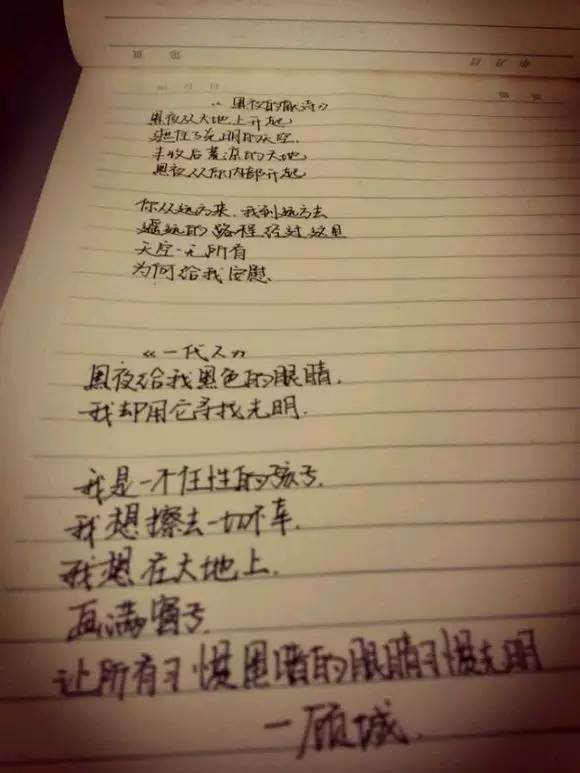 《黑夜的献诗》
黑夜从大地上升起
遮住了光明的天空.
丰收后荒凉的大地
黑夜从你内部升起
你从远方来,我到远方去
遥远的路程经过这里
天空一无所有
为何给我安慰
《一代人》
黑夜给我黑色的眼睛,
我却用它寻找光明.
我是一个任性的孩子.
我想擦去一切不幸.
我想在大地上.
画满窗子.
让所有习惯黑暗的眼睛习惯光明
—顾城.